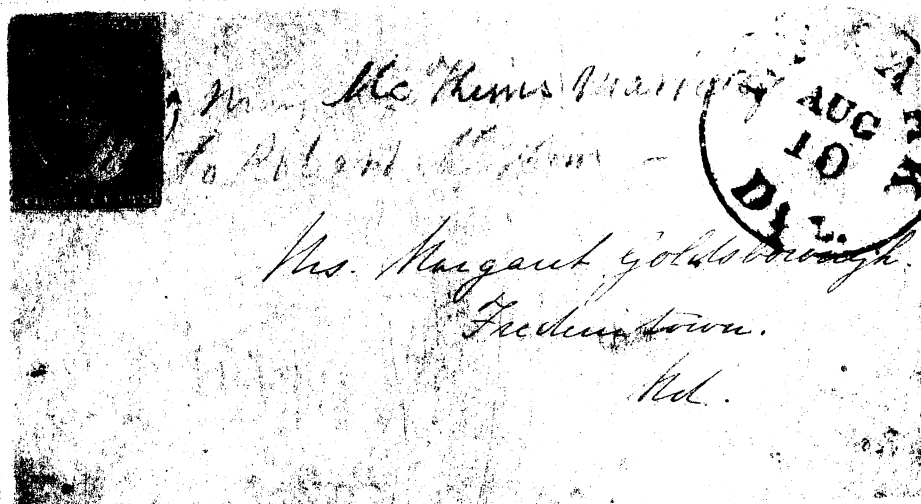 Mc Kims marriage
to Robert Mc Kim -
ARK
AUG
10
DEL.
Mrs. Margaret Goldsborough.
Fredericktown.
Md.